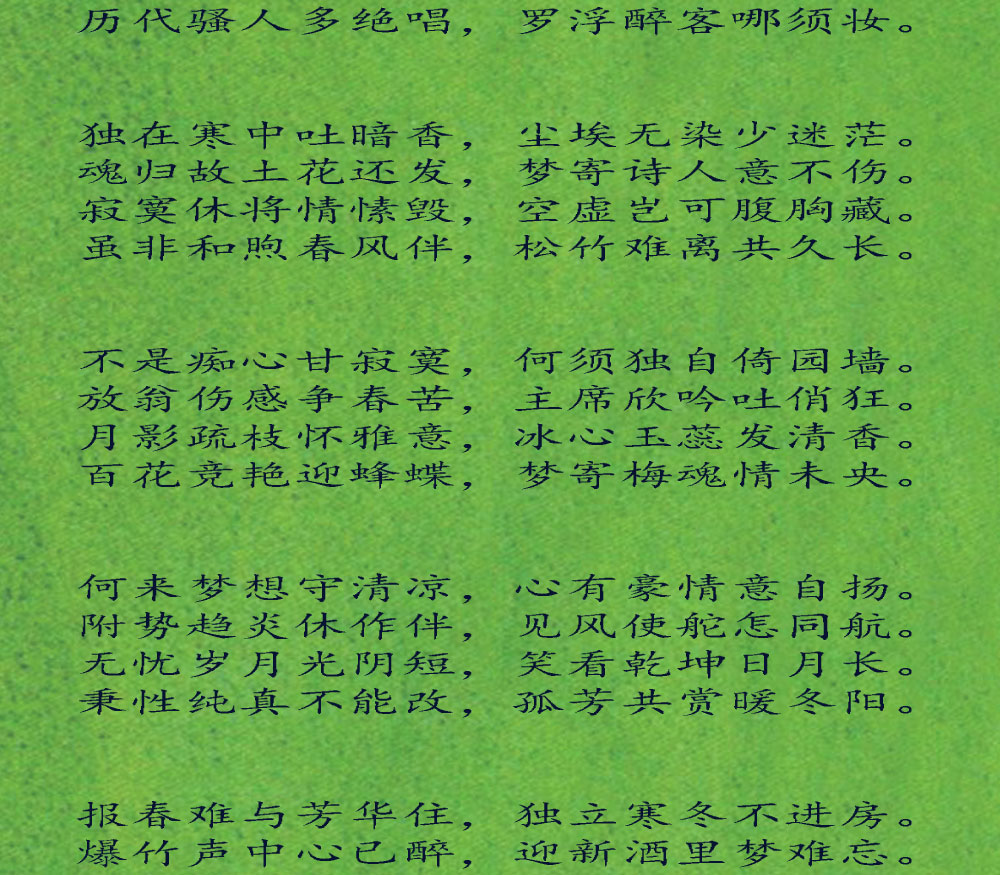 历代骚人多绝唱，罗浮醉客哪须妆。
独在寒中吐暗香，尘埃无染少迷茫。
魂归故土花还发，梦寄诗人意不伤。
寂寞休将情愫毁，空虚岂可腹胸藏。
虽非和煦春风伴，松竹难离共久长。
不是痴心甘寂寞，何须独自倚园墙。
放翁伤感争春苦，主席欣吟吐俏狂。
月影疏枝怀雅意，冰心玉蕊发清香。
百花竞艳迎蜂蝶，梦寄梅魂情未央。
何来梦想守清凉，心有豪情意自扬。
附势趋炎休作伴，见风使舵怎同航。
无忧岁月光阴短，笑看乾坤日月长。
秉性纯真不能改，孤芳共赏暖冬阳。
报春难与芳华住，独立寒冬不进房。
爆竹声中心已醉，迎新酒里梦难忘。